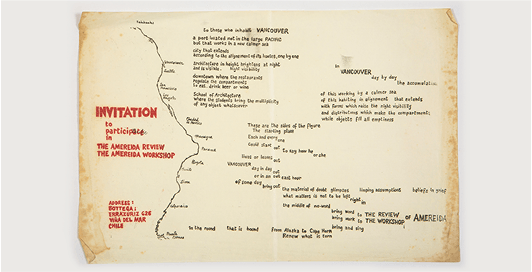 to those who inhabit VANCOUVER
a port located out in the large PACIFIC
but that works in a new calmer sea
city that extends
according to the alignment of its houses, one by one
architecture in height brightens at night
and is visible. night visibility
downtown where the restaurants
regulate the compartments
to eat, drink beer or wine
School of Architecture
where the students bring the multiplicity
of any object whatsoever
in
VANCOUVER
day by day
the accumulation
of this working by a calmer sea
of this habiting in alignment that extends
with forms which raise the night visibility
and distributions which make the compartments
while objects fill all emptiness
INVITATION
to
participate
in
THE AMEREIDA REVIEW
THE AMEREIDA WORKSHOP
ADDRESS:
BOTTEGA:
ERRAZURIZ 628
VIÑA DEL MAR
CHILE
Vancouver
Seattle
San Francisco
Los Angeles
Nicaragua
Panama
Bogota
Valparaiso
Cape Horn
These are the sides of the figure
The starting place
Each and every one
could start out to say how he
or she
lives or looks out
VANCOUVER
day in day out
or in an east hour
of some day
bring out the material of doubt glimpses
what matters is not to be left
right in
the middle of no-word
bring word to THE REVIEW
bring work to THE WORKSHOP of AMEREIDA
bring and sing
to the road that is bound from Alaska to Cape Horn
Renew what is torn